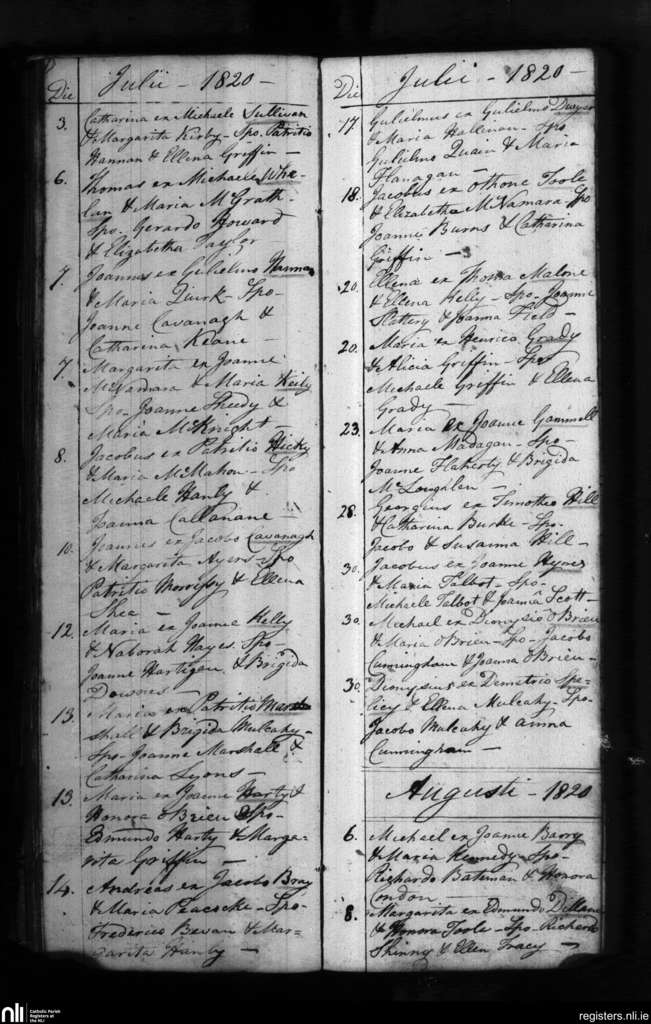 Die Julii - 1820 -
3. Catharina ex Michaele Sullivan
& Margarita Kirby - Spo. Patritio
Hannan & Ellena Griffin -
6. Thomas ex Michaele Whe-
lan & Maria McGrath -
Spo. Gerardo Howard
& Elizabetha Taylor
7. Joannes ex Gulielmo
& Maria Quirk - Spo -
Joanne Cavanagh &
Catharina Keane -
7. Margarita ex Joanne
McNamara & Maria Kiely
Spo. Joanne Sheedy &
Maria McKnight -
8. Jacobus ex Patritio Hicky
& Maria McMahon - Spo
Michaele Hanly &
Joanna Callanane -
10. Joannes ex Jacobo Cavanagh
& Margarita Ayers - Spo
Patritio Morrissy & Ellena
Shea -
12. Maria ex Joanne Kelly
& Naborah Hayes. Spo -
Joanne Hartigan & Brigida
Downes -
13. Maria ex Patritio Marsh
shall & Brigida Mulcahy -
Spo - Joanne Marshall &
Catharina Lyons -
13. Maria ex Joanne Harty &
Honora OBrien Spo -
Edmundo Harty & Marga-
rita Griffin -
14. Andreas ex Jacobo Bray
& Maria Peacocke - Spo -
Frederico Bevan & Mar-
garita Hanly -
Die Julii - 1820 -
17. Gulielmus ex Gulielmo Dwyer
& Maria Hallinan - Spo.
Gulielmo Quain & Maria
Flanagan -
18. Jacobus ex Othone Toole
& Elizabetha McNamara - Spo
Joanne Burns & Catharina
Griffin -
20. Ellena ex Thoma Malone
& Ellena Kelly - Spo - Joanne
Slattery & Joanna Field -
20. Maria ex Henrico Grady
& Alicia Griffin - Spo
Michaele Griffin & Ellena
Grady -
23. Maria ex Joanne Gammell
& Anna Madagan - Spo -
Joanne Flaherty & Brigida
McLoughlen -
28. Georgius ex Timotheo Hill
& Catharina Burke - Spo -
Jacobo & Susanna Hill -
30. Jacobus ex Joanne Hynes
& Maria Talbot - Spo -
Michaele Talbot & Joanna Scott -
30. Michael ex Dionysio OBrien
& Maria OBrien - Spo - Jacobo
Cunningham & Joanna OBrien -
30. Dionysius ex Demetrio Spe-
licy & Ellena Mulcahy - Spo -
Jacobo Mulcahy & Anna
Cunningham -
Augusti - 1820
6. Michael ex Joanne Barry
& Maria Kennedy - Spo -
Richardo Bateman & Honora
Condon -
8. Margarita ex Edmundo
& Honora Toole - Spo - Richardo
Skinny & Ellen Tracy -
nli
Catholic Parish
Registers at
the NLI
registers.nli.ie